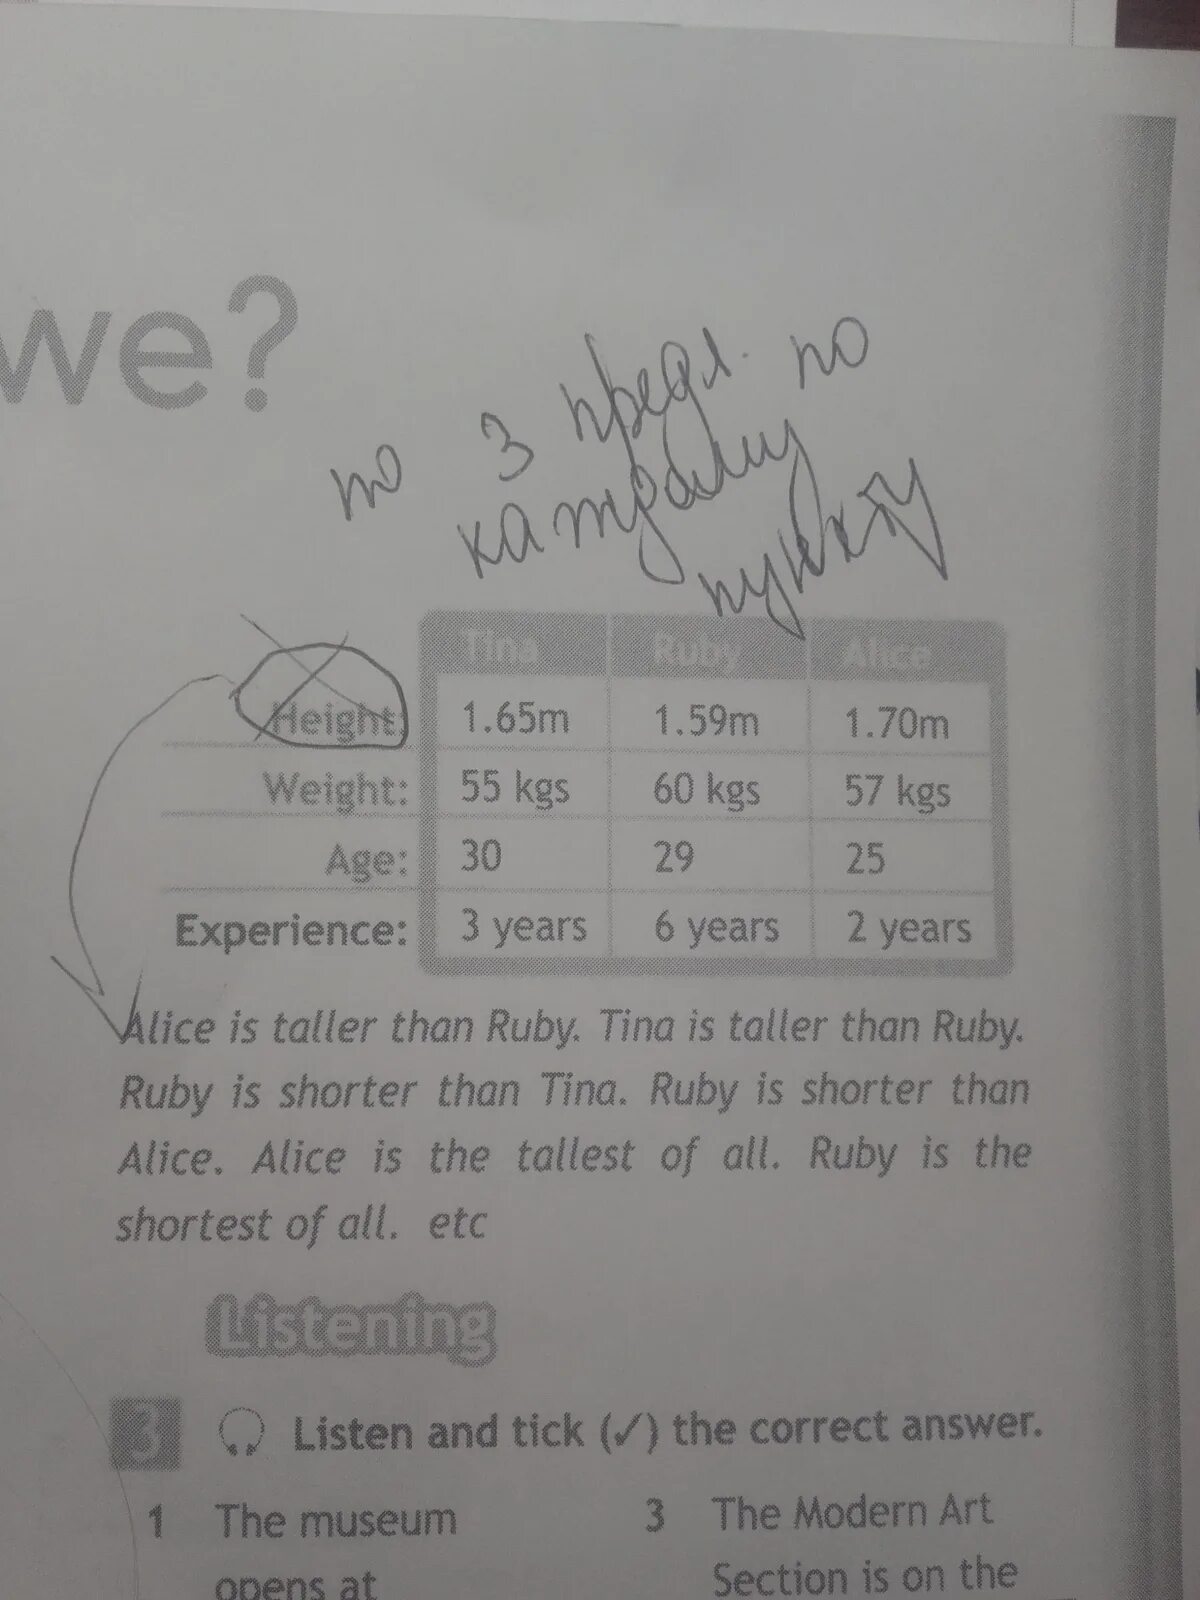 we?
по 3 предл. по
каждому
пункту
Tina Ruby Alice
Height: 1.65m 1.59m 1.70m
Weight: 55 kgs 60 kgs 57 kgs
Age: 30 29 25
Experience: 3 years 6 years 2 years
Alice is taller than Ruby. Tina is taller than Ruby.
Ruby is shorter than Tina. Ruby is shorter than
Alice. Alice is the tallest of all. Ruby is the
shortest of all. etc
Listening
3 Listen and tick (✓) the correct answer.
1 The museum
opens at
3 The Modern Art
Section is on the